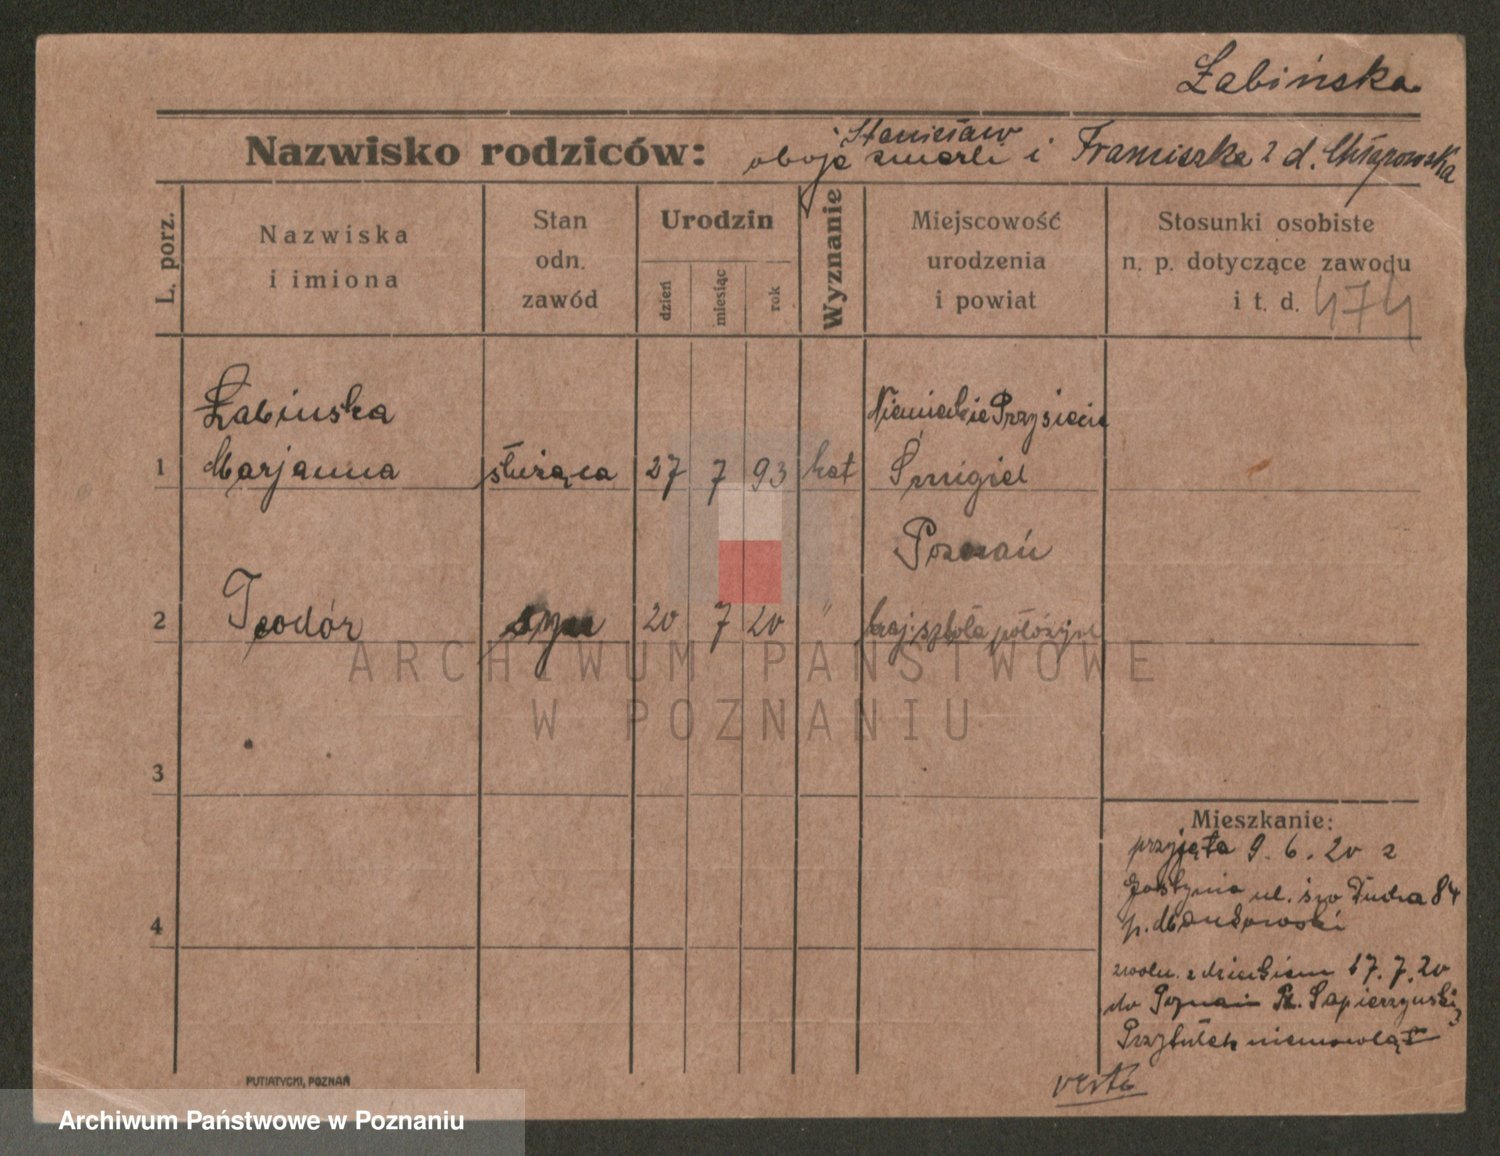 Żabińska
Nazwisko rodziców: Stanisław i Franciszka z d.
oboje zmarli
L. porz.
Nazwiska
i imiona
Stan
odn.
zawód
Urodzin
dzień
miesiąc
rok
Wyznanie
Miejscowość
urodzenia
i powiat
Stosunki osobiste
n. p. dotyczące zawodu
i t. d. 474
Żabińska Niemieckie Przysieka
1 Marjanna służąca 27 7 93 kat Śmigiel
Poznań
2 Teodór syn 20 7 20 " kraj. szkoła położnych
3
4
Mieszkanie:
przyjęta 9. 6. 20 z
Gostynia ul. św Ducha 84
p.
zwoln. z dzieckiem 17. 7. 20
do Poznań Pl. Sapierzyński 3
Przytułek niemowląt
verte
PUTIATYCKI, POZNAŃ
ARCHIWUM PAŃSTWOWE
W POZNANIU
Archiwum Państwowe w Poznaniu